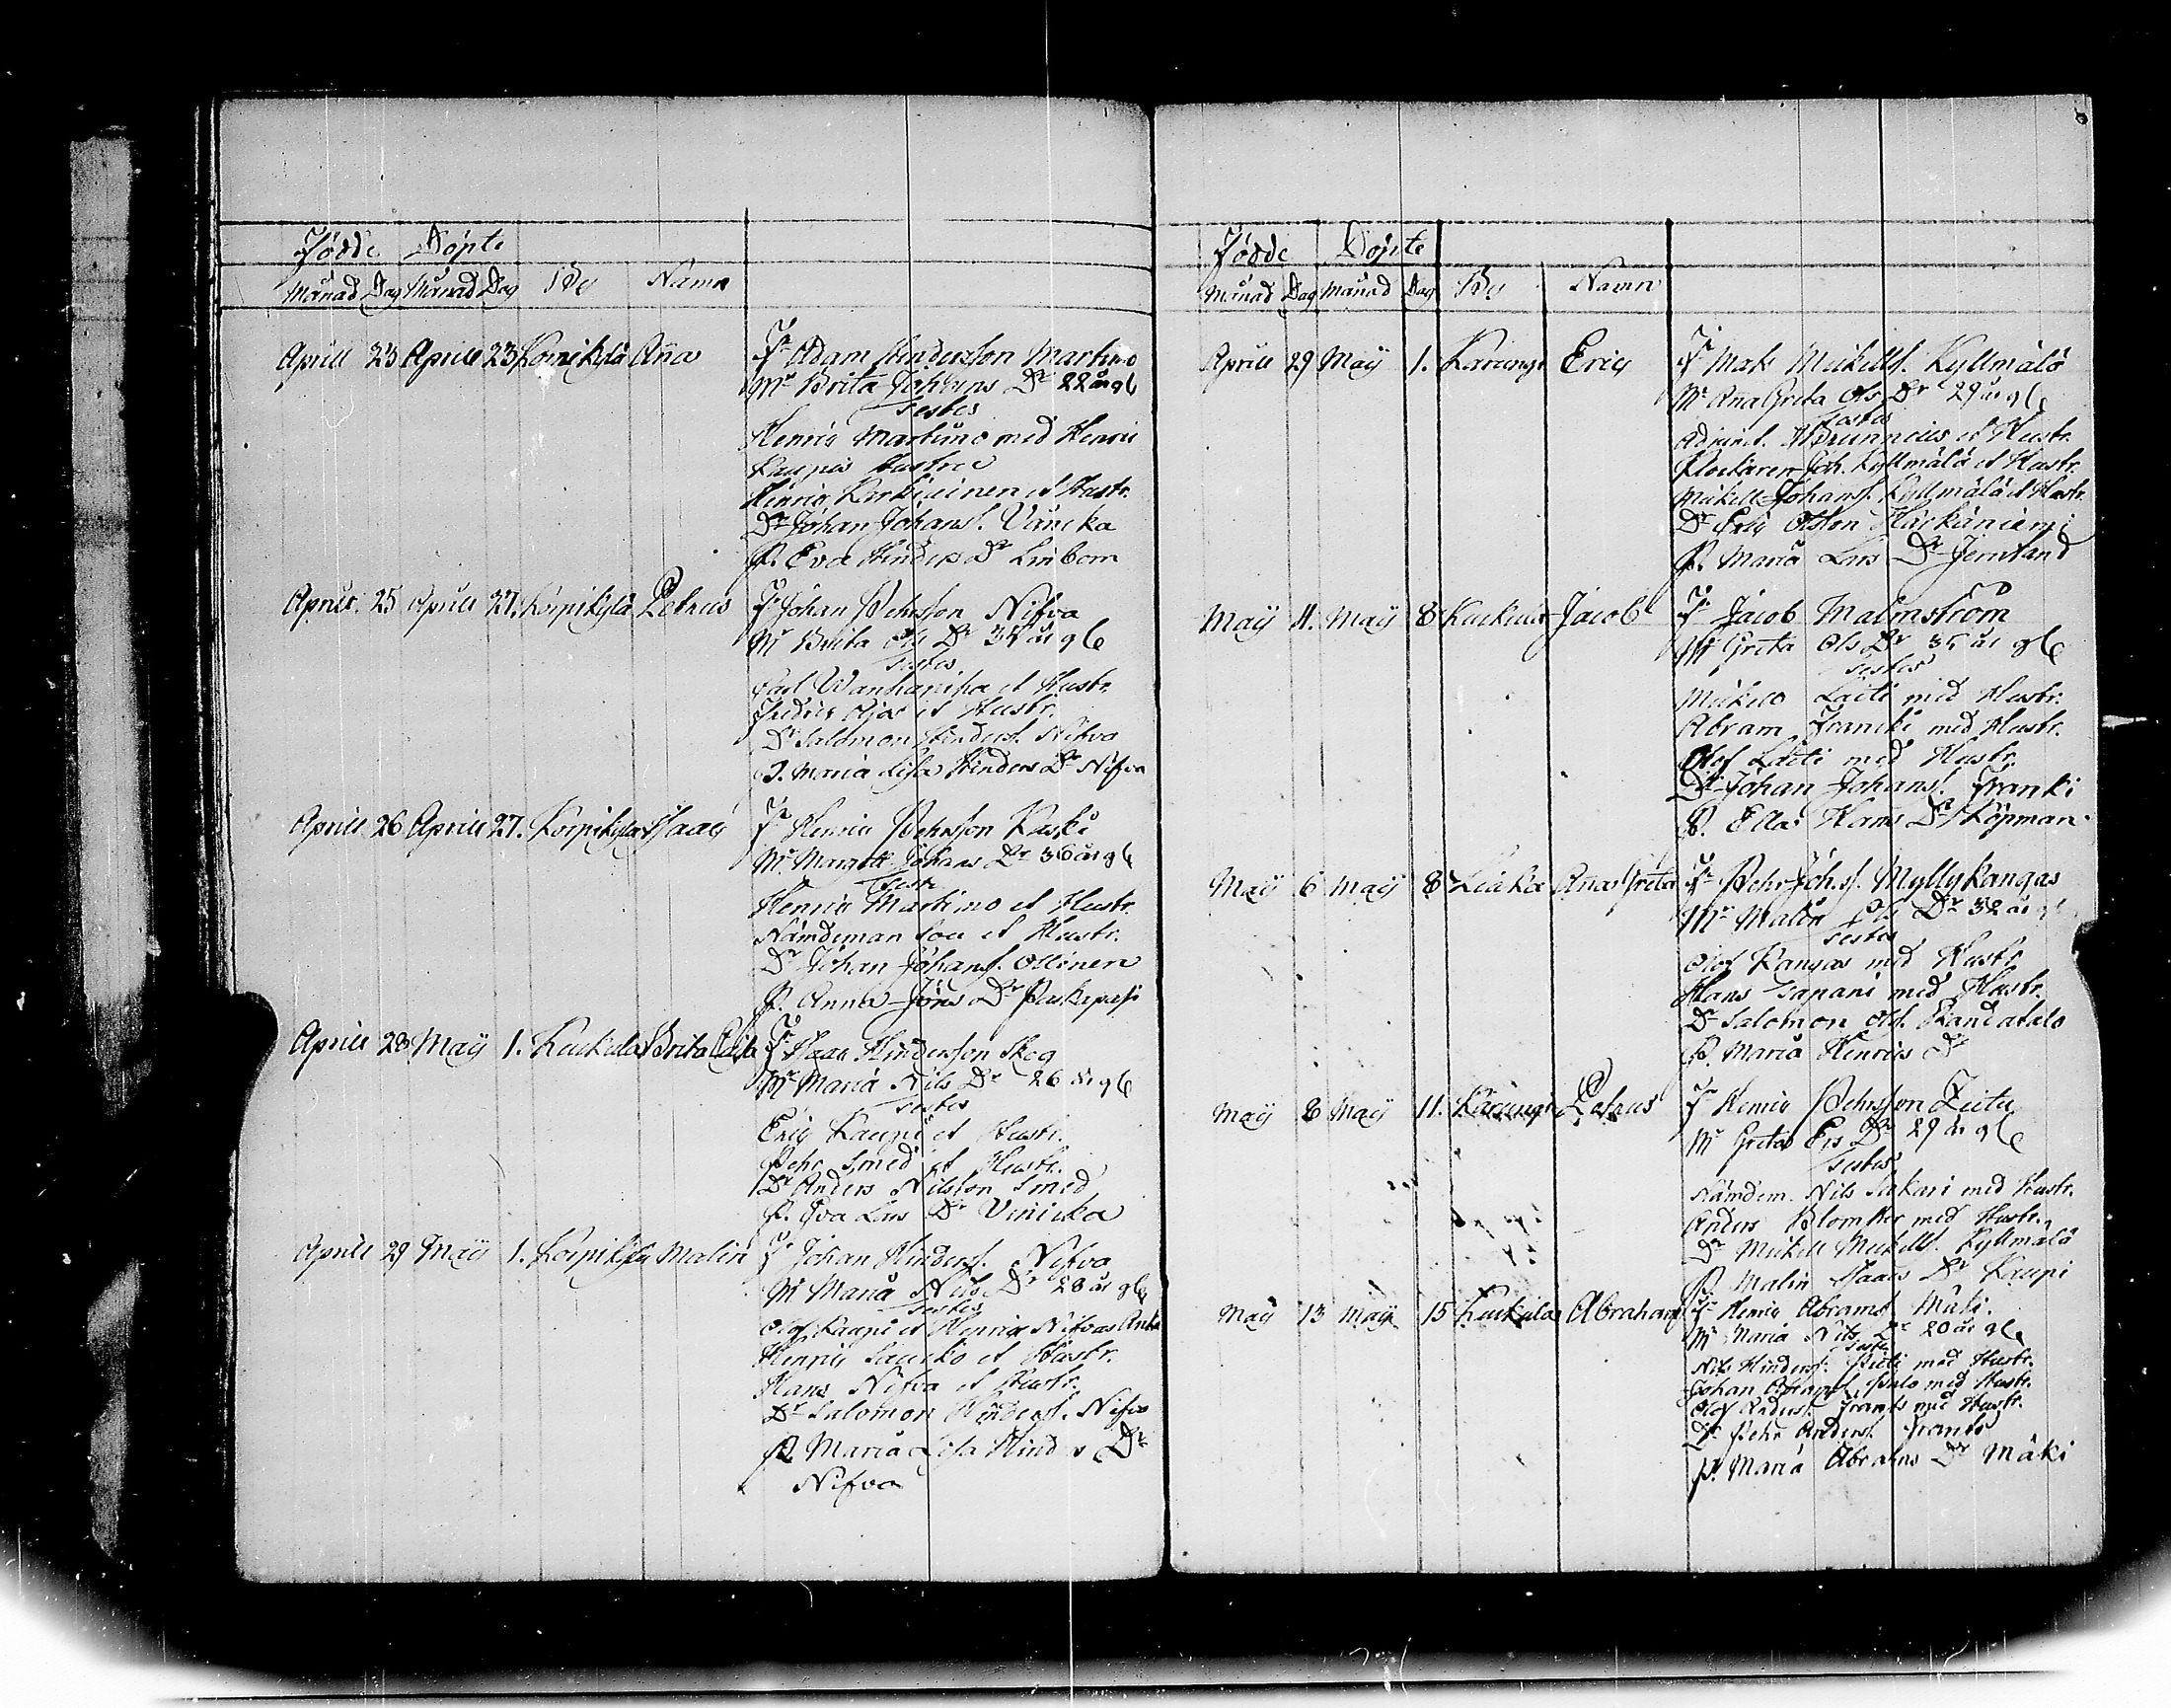 Födde Döpte
Månad Dag Månad Dag By Namn
Aprill 23 Aprill 23 Korpikylä Aña Fr Adam Hindersson Martimo
Mr Brita Johans Dr 22 år gl
testes
Henric Martimo med Henric
Kaupis Hustru
Henric Karkiainen et Hustr.
Dr Johan Johanss. Vän
P. Eva Hinders Dr Linbom
Aprill 25 Aprill 27. Korpikylä Petrus Fr Johan Pehrsson Nifva
Mr Brita Ols Dr 34 år gl
testes
Carl Wanhanpiha et Hustr.
Fredric et Hustr.
Dr Salomon Hinderss. Nifva
P. Maria Lisa Hinders Dr Nifva
Aprill 26 Aprill 27. Korpikylä Isaac Fr Henric Pehrsson Kaski
Mr Margeta Johans Dr 36 år gl
Teste
Henric Martimo et Hustr.
Nämdeman et Hustr.
Dr Johan Johanss. Ollinen
P. Anna Jöns Dr
Aprill 28 May 1. Kuckula Brita Cajsa Fr Isaac Hindersson Skog
Mr Maria Nils Dr 26 år gl
testes
Eric Kaupi et Hustr.
Pehr Smed et Hustr.
Dr Anders Nilsson Smed
P. Eva Lars Dr Vinicka
Aprill 29 May 1. Korpikylä Malin Fr Johan Hinderss. Nifva
Mr Maria Nils Dr 28 år gl
testes
Olof Kaupi et Henric Nifvas
Henric et Hustr.
Hans Nifva et Hustr.
Dr Salomon Hinderss. Nifva
P. Maria Lisa Hinders Dr
Nifva
Födde Döpte
Månad Dag Månad Dag By Namn
Aprill 29 May 1. Karungi Eric Fr Mats Mickells. Kyllmälä
Mr Ana Greta Ols Dr 29 år gl
testes
Adjunct. Brunnius et Hustr.
Klockaren Joh. Kyllmälä et Hustr.
Mickell Johanss. Kyllmälä et Hustr.
Dr Eric Olsson Harkäniemi
P. Maria Lars Dr Jemland
May 4. May 8 Kuckula Jacob Fr Jacob Malmström
Mr Greta Ols Dr 35 år gl
testes
Mickel Laiti med Hustr.
Abram Francki med Hustr.
Olof Laiti med Hustr.
Dr Johan Johanss. Franki
P. Ella Hans Dr Köpman
May 6 May 8 Liaka Aña Greta Fr Pehr Johss. Myllykangas
Mr Malin Ols Dr 32 år gl
testes
Olof Kangas med Hustr.
Hans Tapani med Hustr.
Dr Salomon Ols. Randatalo
P. Maria Henrics Dr
May 8 May 11. Karungi Petrus Fr Henric Pehrsson Zeitu
Mr Greta Ers Dr 29 år gl
testes
Nämdem. Nils Sukari med Hustr.
Anders Blomster med Hustr.
Dr Mickell Mickells. Kyllmälä
P. Malin Isaacs Dr Kaupi
May 13 May 15 Kuckula Abraham Fr Henric Abrams. Mäki.
Mr Maria Nils Dr 20 år gl
testes
Nils Hinderss. med Hustr.
Johan Abrams. Palo med Hustr.
Olof Anders. Franki med Hustr.
Dr Pehr Anders. Franki
P. Maria Abrahms Dr Mäki